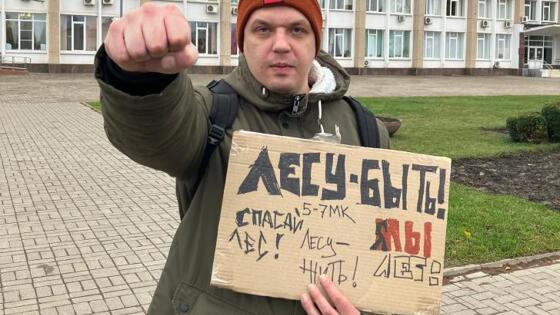 ЛЕСУ-БЫТЬ!
5-7МК
СПАСАЙ
ЛЕС!
ЛЕСУ-
ЖИТЬ!
МЫ
ЛЕС!